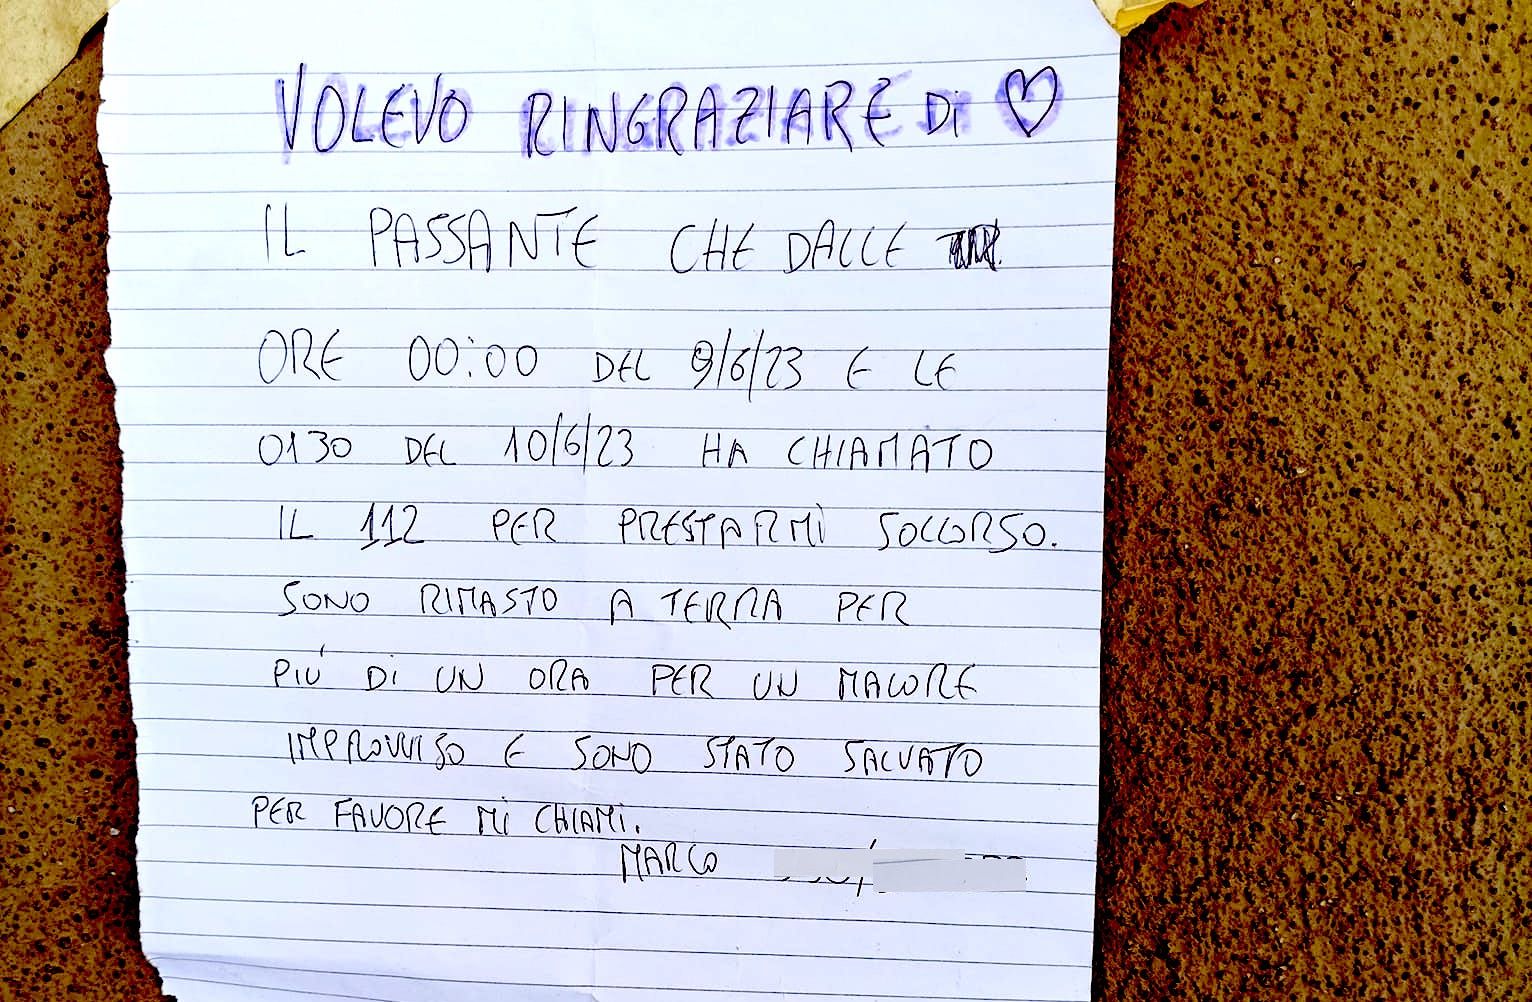 VOLEVO RINGRAZIARE DI ♡
IL PASSANTE CHE DALLE
ORE 00:00 DEL 9/6/23 E LE
0130 DEL 10/6/23 HA CHIAMATO
IL 112 PER PRESTARMI SOCCORSO.
SONO RIMASTO A TERRA PER
PIÚ DI UN ORA PER UN MALORE
IMPROVVISO E SONO STATO SALVATO
PER FAVORE MI CHIAMI.
MARCO